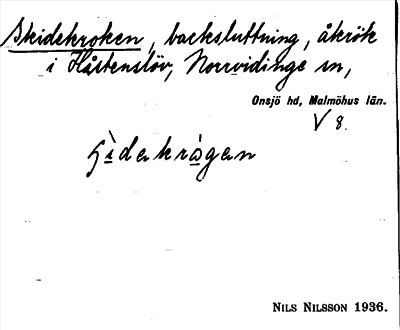 Skidekroken, backsluttning, åkrök
i Håstenslöv, Norrvidinge sn,
Onsjö hd, Malmöhus län.
V 8.
ʃìdekrågen
NILS NILSSON 1936.